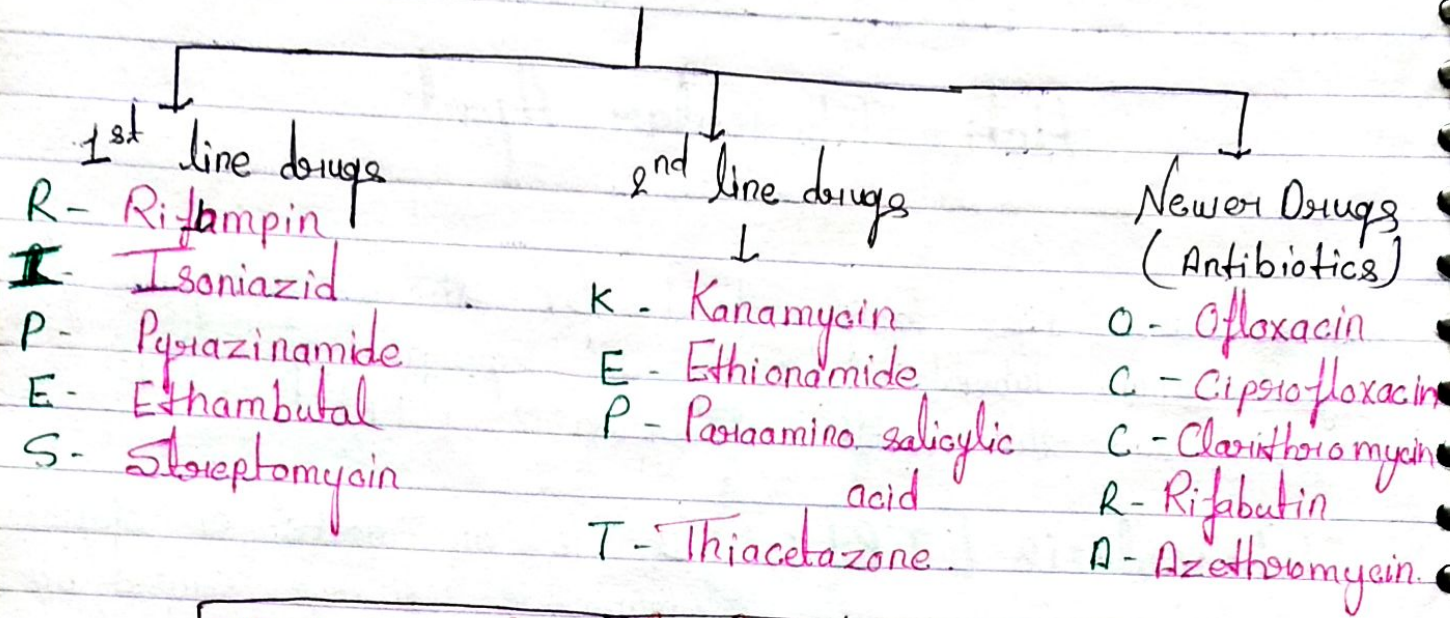 1st line drugs
R- Rifampin
I- Isoniazid
P- Pyrazinamide
E- Ethambutal
S- Streptomycin
2nd line drugs
K- Kanamycin
E- Ethionamide
P- Paraamino salicylic
acid
T- Thiacetazone.
Newer Drugs
(Antibiotics)
O- Ofloxacin
C- Ciprofloxacin
C- Clarithromycin
R- Rifabutin
A- Azethromycin.